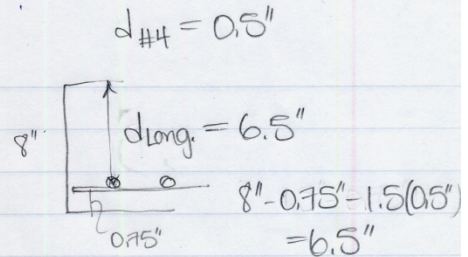 d #4 = 0.5"
8"
dLong. = 6.5"
0.75"
8"-0.75"-1.5(0.5")
=6.5"